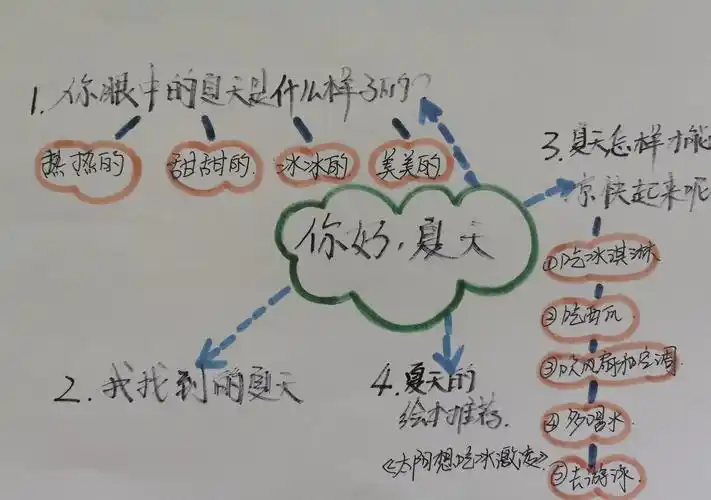 1. 你眼中的夏天是什么样子的?
热热的
甜甜的
冰冰的
美美的
你好,夏天
3. 夏天怎样才能
凉快起来呢
①吃冰淇淋
②吃西瓜
③吹风扇和空调
④多喝水
⑤去游泳
2. 我找到的夏天
4. 夏天的
绘本推荐
《太阳想吃冰激凌》